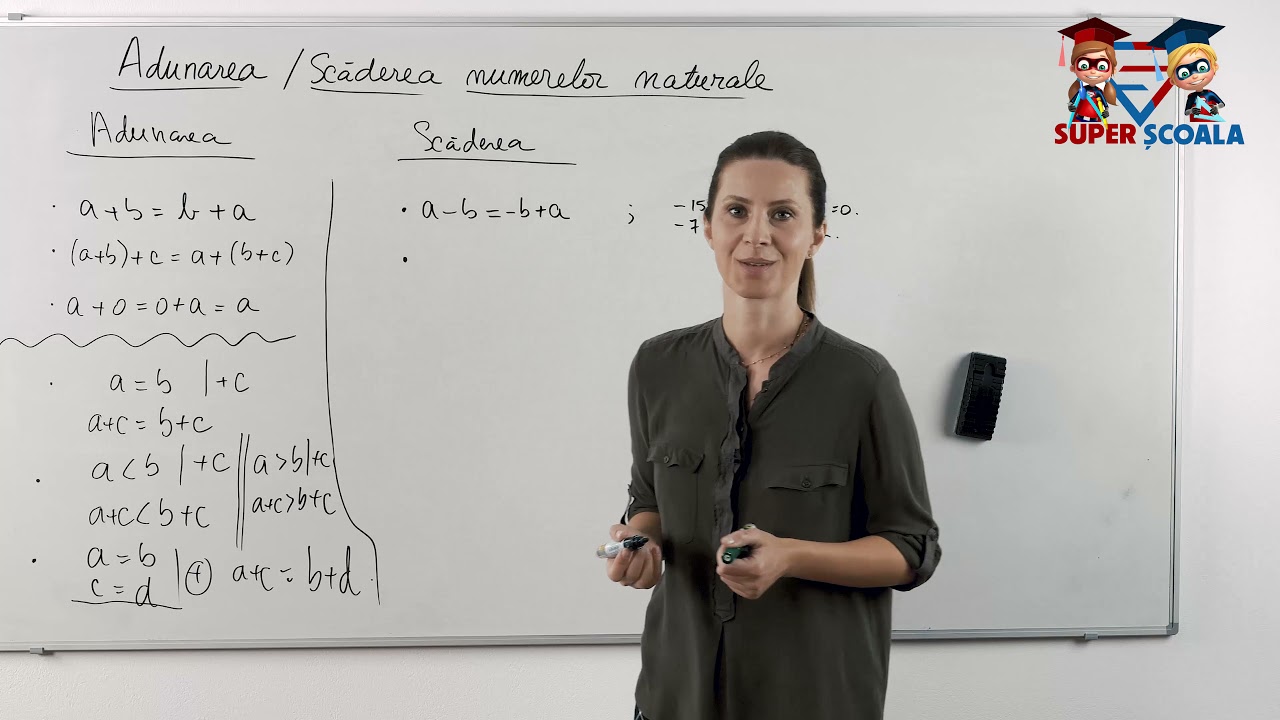 Adunarea / Scăderea numerelor naturale
SUPER ȘCOALA
Adunarea
· a+b = b+a
· (a+b)+c = a+(b+c)
· a+0=0+a = a
· a=b |+c
a+c = b+c
· a<b |+c || a>b|+c
a+c<b+c || a+c>b+c
· a=b
c=d | (+) a+c = b+d.
Scăderea
• a-b=-b+a ; -15 =0.
-7
•